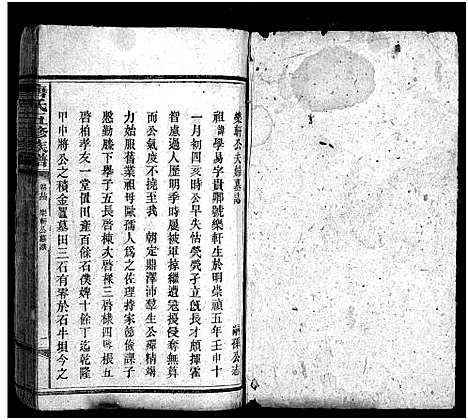 樂軒公夫婦墓誌
嗣孫公志
祖諱學易字貴卿號樂軒生於明崇禎五年壬申十
一月初四亥時公早失怙煢煢孑立旣長才頗揮霍
智慮過人歷明季時屢被軍掠繼遭寇擾侵奪無算
而公氣度不撓至我　朝定鼎澤沛羣生公殫精竭
力始服舊業祖母歐孺人爲之佐理持家節儉課子
懃勤膝下舉子五長啓棟次啓祿三啓棣四啓根五
啓柏孝友一堂置田產百餘石僕婢十餘丁迄乾隆
甲申將公之積金置墓田三石有零於石牛垻今之
氏五修族譜
樂軒公墓誌